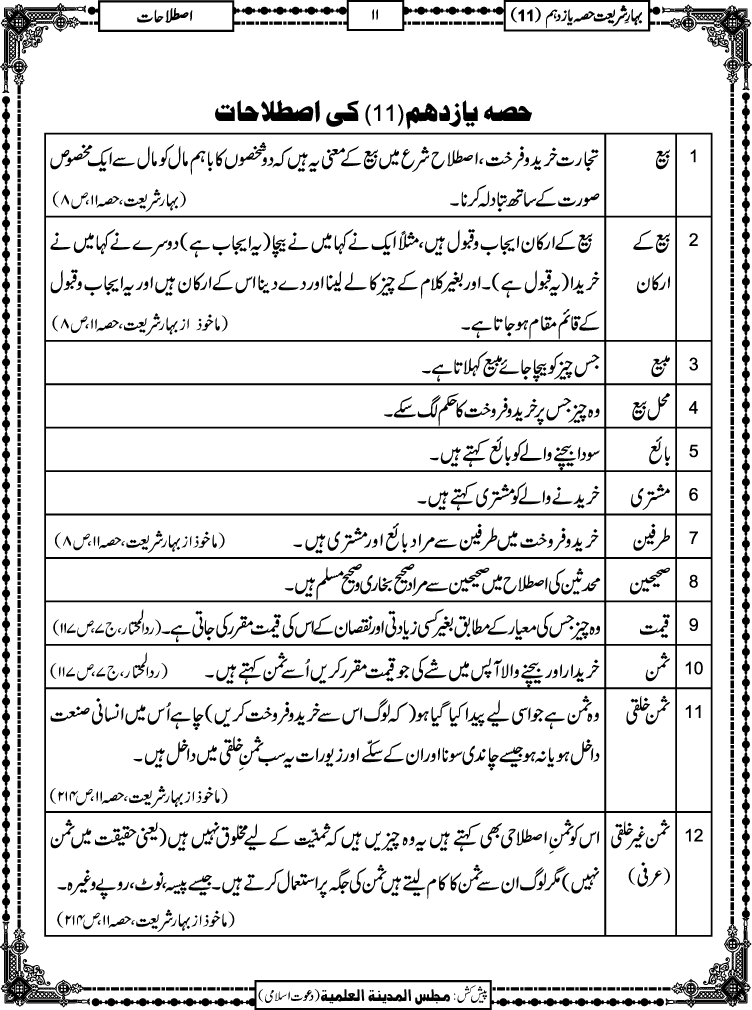 بہارِ شریعت حصہ یازدہم (11)
۱۱
اصطلاحات
حصہ یازدہم(11) کی اصطلاحات
1 بیع تجارت خرید و فرخت، اصطلاح شرع میں بیع کے معنی یہ ہیں کہ دو شخصوں کا باہم مال کو مال سے ایک مخصوص
صورت کے ساتھ تبادلہ کرنا۔ (بہار شریعت، حصہ ۱۱، ص ۸)
2 بیع کے بیع کے ارکان ایجاب وقبول ہیں، مثلاً ایک نے کہا میں نے بیچا (یہ ایجاب ہے) دوسرے نے کہا میں نے
ارکان خریدا (یہ قبول ہے)۔ اور بغیر کلام کے چیز کا لے لینا اور دے دینا اس کے ارکان ہیں اور یہ ایجاب وقبول
کے قائم مقام ہو جاتا ہے۔ (ماخوذ از بہار شریعت، حصہ ۱۱، ص ۸)
3 مبیع جس چیز کو بیچا جائے مبیع کہلاتا ہے۔
4 محل بیع وہ چیز جس پر خرید و فروخت کا حکم لگ سکے۔
5 بائع سودا بیچنے والے کو بائع کہتے ہیں۔
6 مشتری خریدنے والے کو مشتری کہتے ہیں۔
7 طرفین خرید و فروخت میں طرفین سے مراد بائع اور مشتری ہیں۔ (ماخوذ از بہار شریعت، حصہ ۱۱، ص ۸)
8 صحیحین محدثین کی اصطلاح میں صحیحین سے مراد صحیح بخاری و صحیح مسلم ہیں۔
9 قیمت وہ چیز جس کی معیار کے مطابق بغیر کسی زیادتی اور نقصان کے اس کی قیمت مقرر کی جاتی ہے۔ (ردالمحتار، ج ۷، ص ۱۱۷)
10 ثمن خریدار اور بیچنے والا آپس میں شے کی جو قیمت مقرر کریں اُسے ثمن کہتے ہیں۔ (ردالمحتار، ج ۷، ص ۱۱۷)
11 ثمن خلقی وہ ثمن ہے جو اسی لیے پیدا کیا گیا ہو (کہ لوگ اس سے خرید و فروخت کریں) چاہے اُس میں انسانی صنعت
داخل ہو یا نہ ہو جیسے چاندی سونا اور ان کے سکّے اور زیورات یہ سب ثمنِ خلقی میں داخل ہیں۔
(ماخوذ از بہار شریعت، حصہ ۱۱، ص ۲۱۴)
12 ثمن غیر خلقی اس کو ثمنِ اصطلاحی بھی کہتے ہیں یہ وہ چیزیں ہیں کہ ثمنیّت کے لیے مخلوق نہیں ہیں (یعنی حقیقت میں ثمن
(عرفی) نہیں) مگر لوگ ان سے ثمن کا کام لیتے ہیں ثمن کی جگہ پر استعمال کرتے ہیں۔ جیسے پیسہ، نوٹ، روپے وغیرہ۔
(ماخوذ از بہار شریعت، حصہ ۱۱، ص ۲۱۴)
پیش کش: مجلس المدینۃ العلمیۃ (دعوت اسلامی)